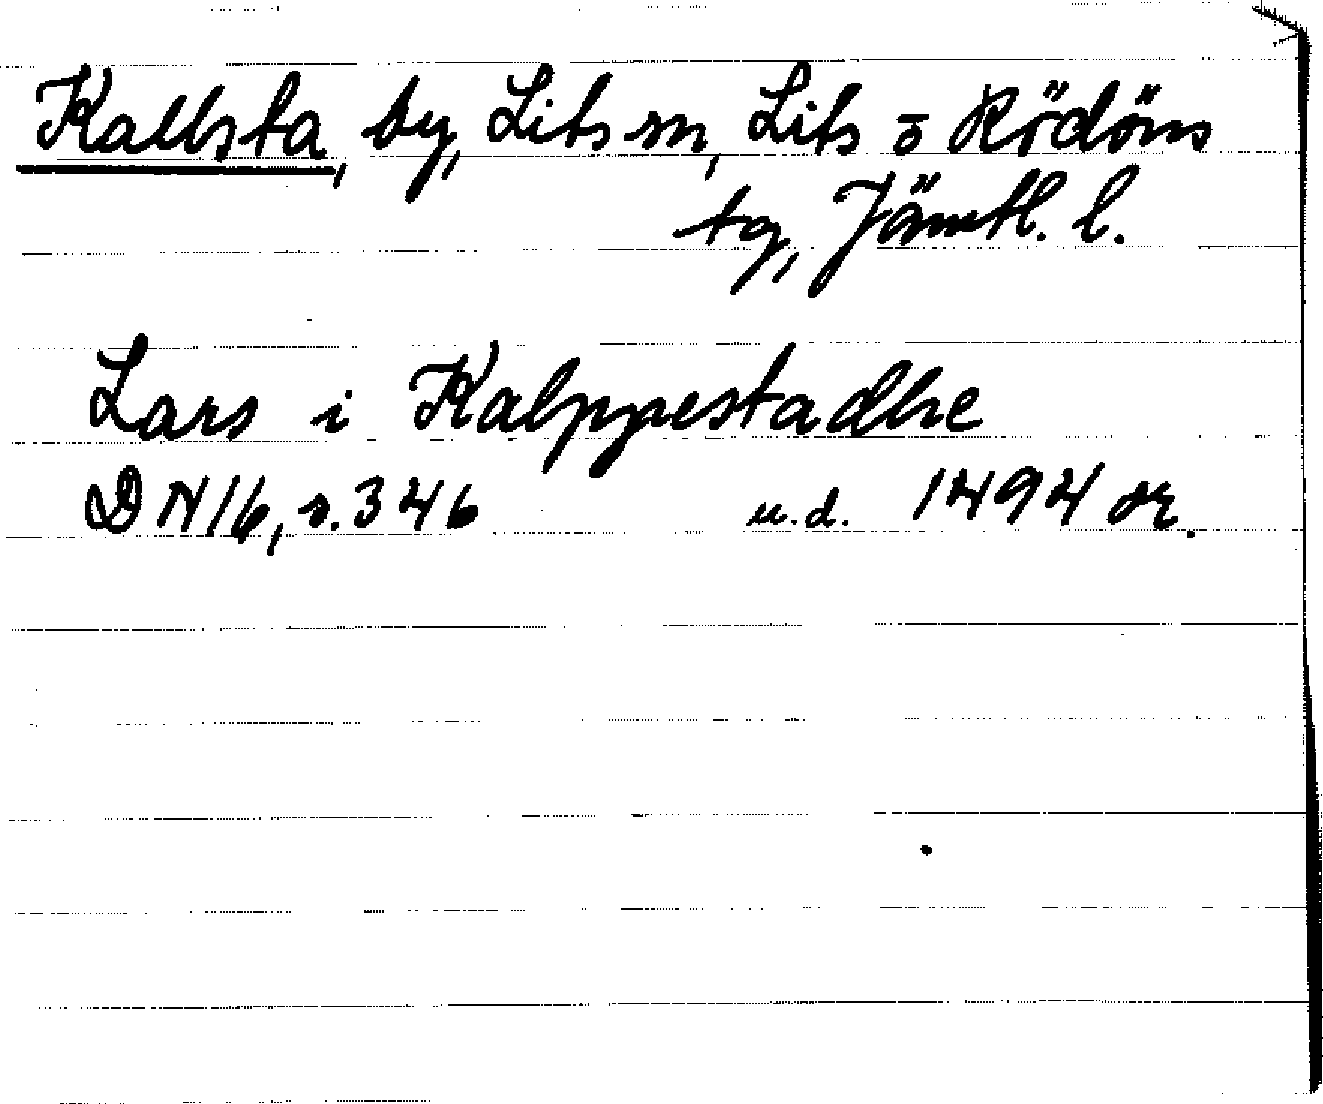 Kallsta, by, Lits sn, Lits o Rödöns
tg, Jämtl. l.
Lars i Kalppestadhe
DN 16, s. 346 u.d. 1494 or.